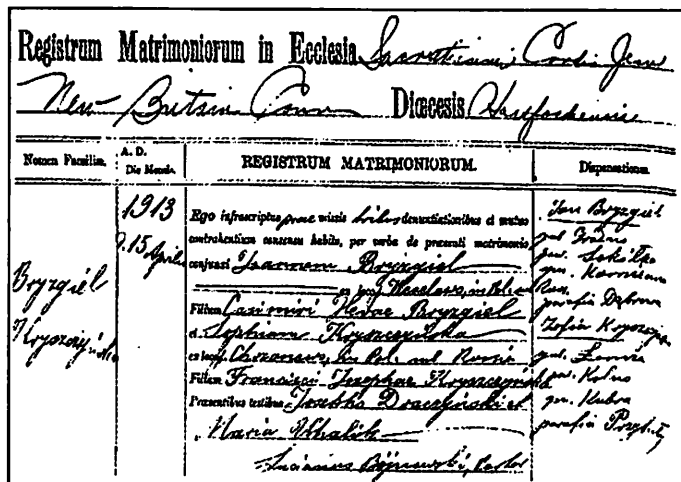 Registrum Matrimoniorum in Ecclesia Sacratissimi Cordis Jesu
New Britain Conn Diœcesis Hartfordiensis
Nomen Familiæ. A. D. Die Mensis. REGISTRUM MATRIMONIORUM. Dispensationes.
1913
d. 15 Aprilis
Bryzgiel
Kryszczyńska
Ego infrascriptus, prae missis tribus denuntiationibus et mutuo
contrahentium consensu habito, per verba de præsenti matrimonio
conjunxi Joannem Bryzgiel
ex loco in Pol. sub Rus.
Filium Casimiri Bryzgiel
et Sophiam Kryszczyńska
ex loco in Pol. sub Russia
Filiam Francisci Josephae Kryszczyńska
Præsentibus testibus Josepho
Maria
Pastor
Jan Bryzgiel
gub. Grodno
pow. Sokółka
gm.
parafia Dąbrowa
Zofia Kryszczyńska
gub. Łomża
pow. Kolno
gm. Kubra
parafia Przytuły